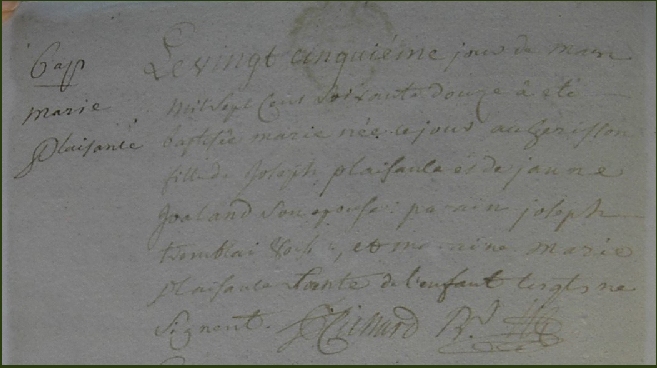 Bap
marie
plaisante
Le vingt cinquiéme jour de mars
mil sept Cent soixante douze à eté
baptisée marie née ce jour au
fille de Joseph plaisante et de jeanne
son epouse: parain joseph
, et maraine marie
plaisante tante de l'enfant lesqls ne
signent.